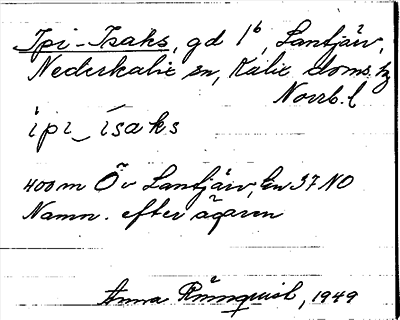 Ipi-Isaks, gd 1⁶, Lantjärv,
Nederkalix sn, Kalix doms. hg
Norrb. l
ipi_ isaks
400 m Ö v Lantjärv, En 37 NO
Namn. efter ägaren
Anna Rönnquist, 1949